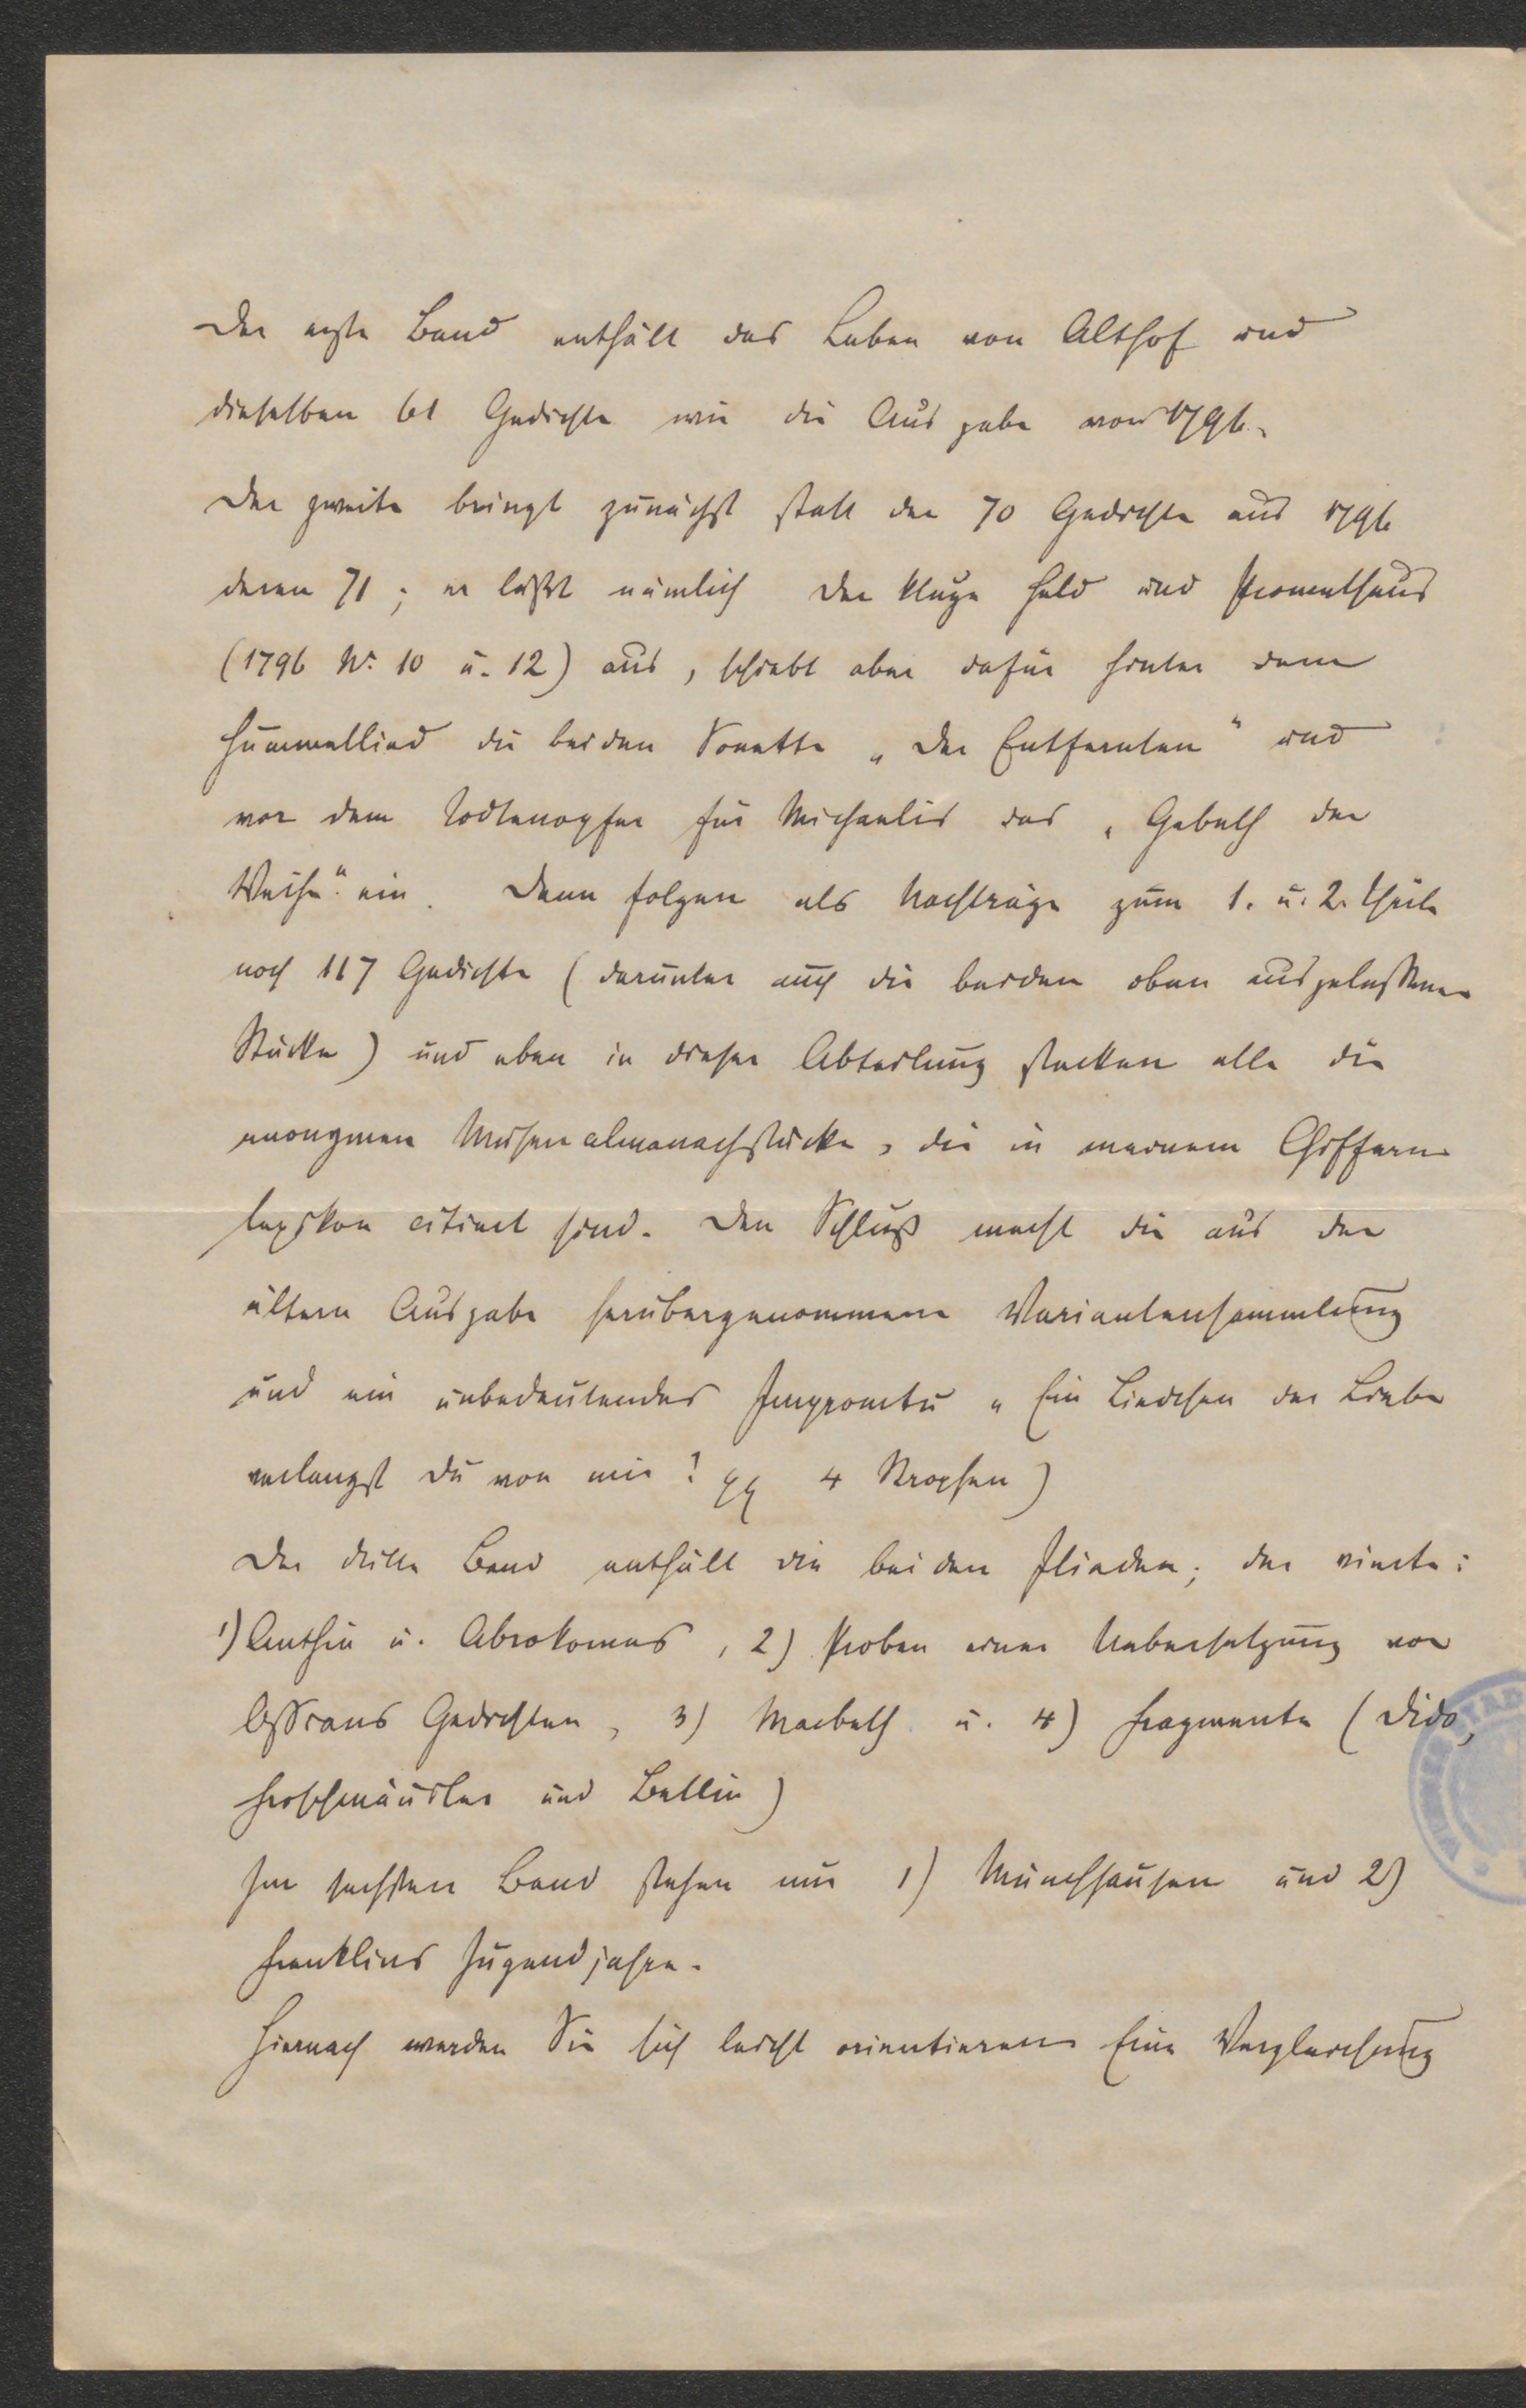 Der erste Band enthält das Leben von Althof und
dieselben 61 Gedichte wie die Ausgabe von 1796.
Der zweite bringt zunächst statt der 70 Gedichte aus 1796
deren 71; er läßt nämlich Der kluge Held und Prometheus
(1796 Nr. 10 u. 12) aus, schiebt aber dafür hinter dem
Hummellied die beiden Sonette „Der Entfernten“ und
vor dem Todtenopfer für Michaelis das „Gebeth der
Weihe“ ein. Dann folgen als Nachträge zum 1. u. 2. Theile
noch 117 Gedichte (darunter auch die beiden oben ausgelassenen
Stücke) und eben in dieser Abteilung stecken alle die
anonymen Musenalmanachstücke, die in meinem Chiffern
lexikon citiert sind. Den Schluß macht die aus der
ältern Ausgabe herübergenommene Variantensammlung
und ein unbedeutendes Impromtu „Ein Liedchen der Liebe
verlangst Du von mir? 4 Strophen)
Der dritte Band enthält die beiden Iliaden; der vierte:
1) Anthia u. Abrokomas, 2) Proben einer Uebersetzung von
Ossians Gedichten, 3) Macbeth u. 4) Fragmente (Dido,
Froschmäusler und Bellin)
Im sechsten Band stehen nur 1) Münchhausen und 2)
Franklins Jugendjahre.
Hiernach werden Sie sich leicht orientieren. Eine Vergleichung